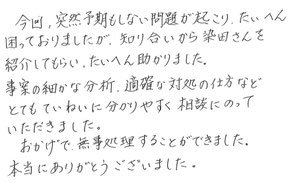 今回、突然予期もしない問題が起こり、たいへん
困っておりましたが、知り合いから染田さんを
紹介してもらい、たいへん助かりました。
事案の細かな分析、適確な対処の仕方など
とてもていねいに分かりやすく相談にのって
いただきました。
おかげで、無事処理することができました。
本当にありがとうございました。